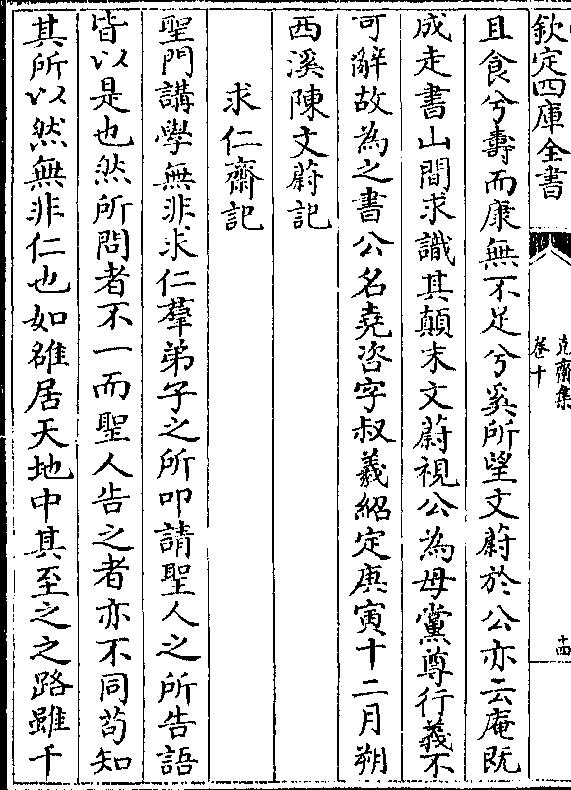 欽定四庫全書
克齋集
卷十
十四
且食兮壽而康無不足兮奚所望文蔚於公亦云庵既
成走書山間求識其顛末文蔚視公為母黨尊行義不
可辭故為之書公名堯咨字叔義紹定庚寅十二月朔
西溪陳文蔚記
求仁齋記
聖門講學無非求仁羣弟子之所叩請聖人之所告語
皆以是也然所問者不一而聖人告之者亦不同苟知
其所以然無非仁也如雒居天地中其至之之路雖千